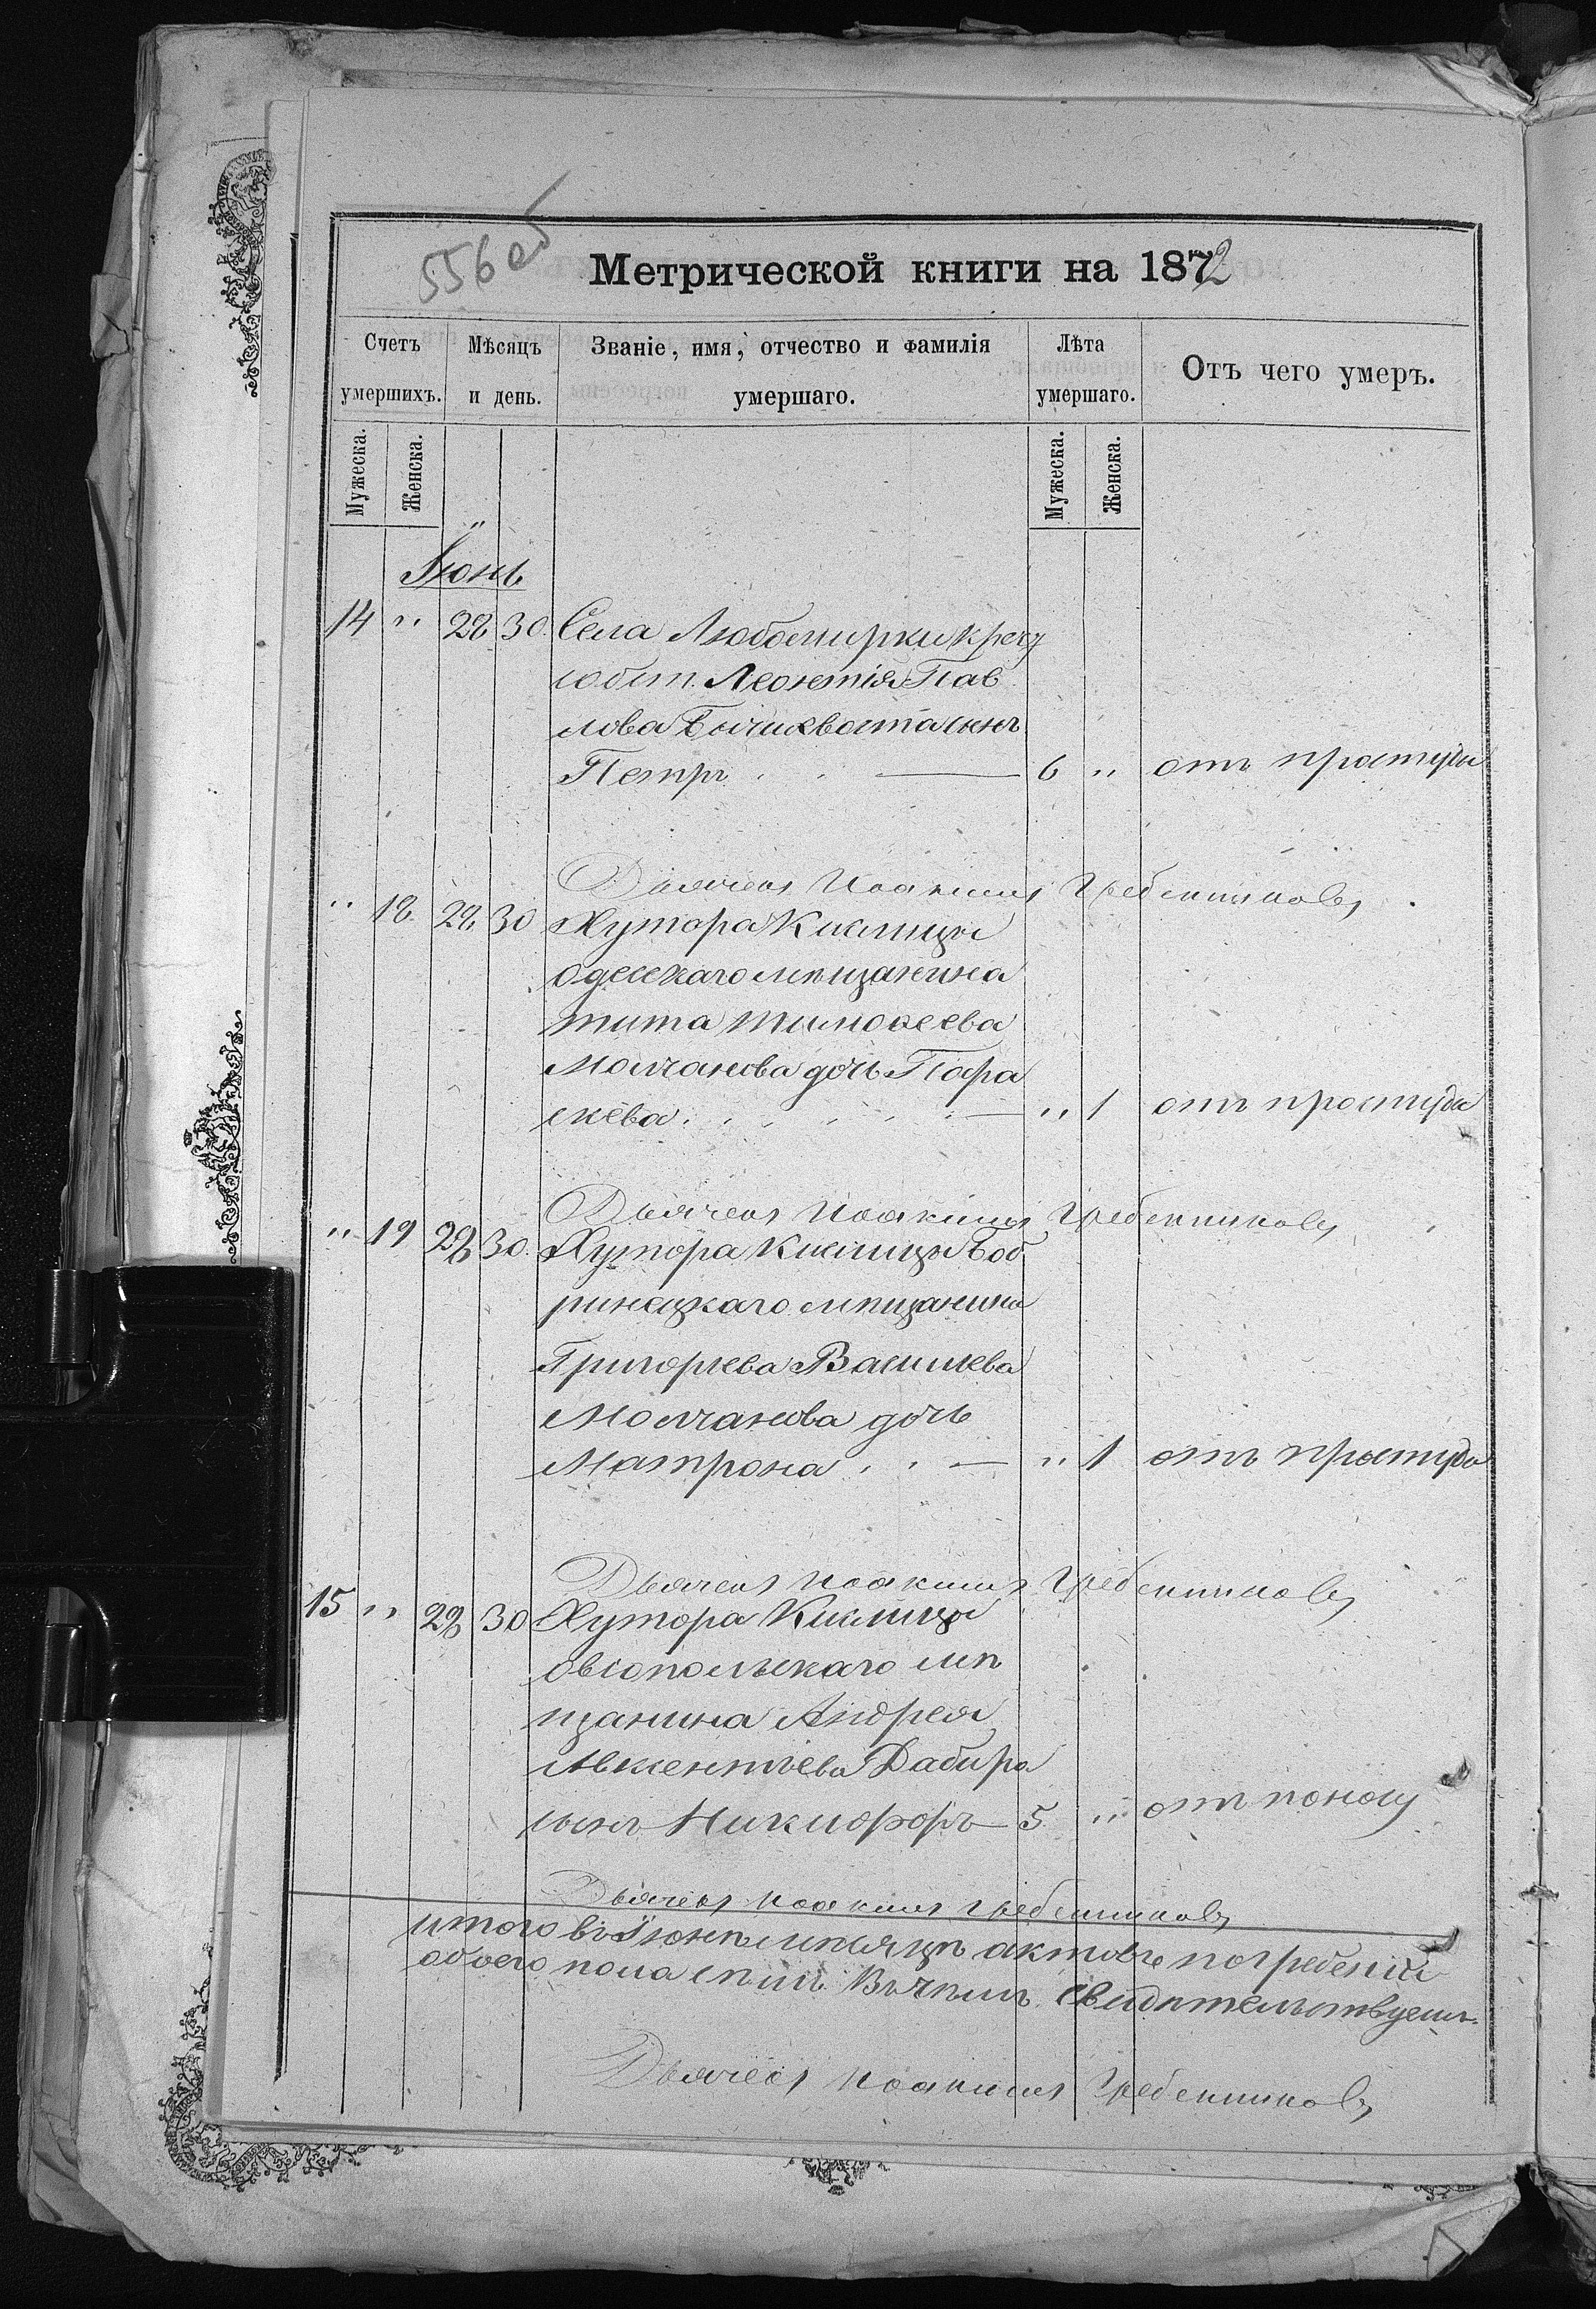 556 об
Метрической книги на 1872
Счетъ умершихъ.
Мѣсяцъ и день.
Званіе, имя, отчество и фамилія умершаго.
Лѣта умершаго.
Отъ чего умеръ.
Мужеска.
Женска.
Мужеска.
Женска.
Іюнь
14 " 28 30 Села Любомирки крест
собст. Леонтія Пав
лова Бычихвоста сынъ
Петръ 6 " отъ простуды
Дьячекъ Іоакимъ Гребенниковъ
" 18 28 30 Хутора Кислицы
одесскаго мѣщанина
тита тимоѳеева
Молчанова дочь Пара
скева " 1 отъ простуды
Дьячекъ Іоакимъ Гребенниковъ
" 19 28 30 Хутора Кислицы Боб
ринецкаго мѣщанина
Григорьева Васильева
Молчанова дочь
Матрона " 1 отъ простуды
Дьячекъ Іоакимъ Гребенниковъ
15 " 28 30 Хутора Кислицы
овіопольскаго мѣ
щанина Андрея
Авксентьева
сынъ Никифоръ 5 " отъ поносу
Дьячекъ Іоакимъ Гребенниковъ
итого въ Іюнѣ мѣсяцѣ актовъ погребенія
обоего пола Въ чемъ свидѣтельствуемъ
Дьячекъ Іоакимъ Гребенниковъ